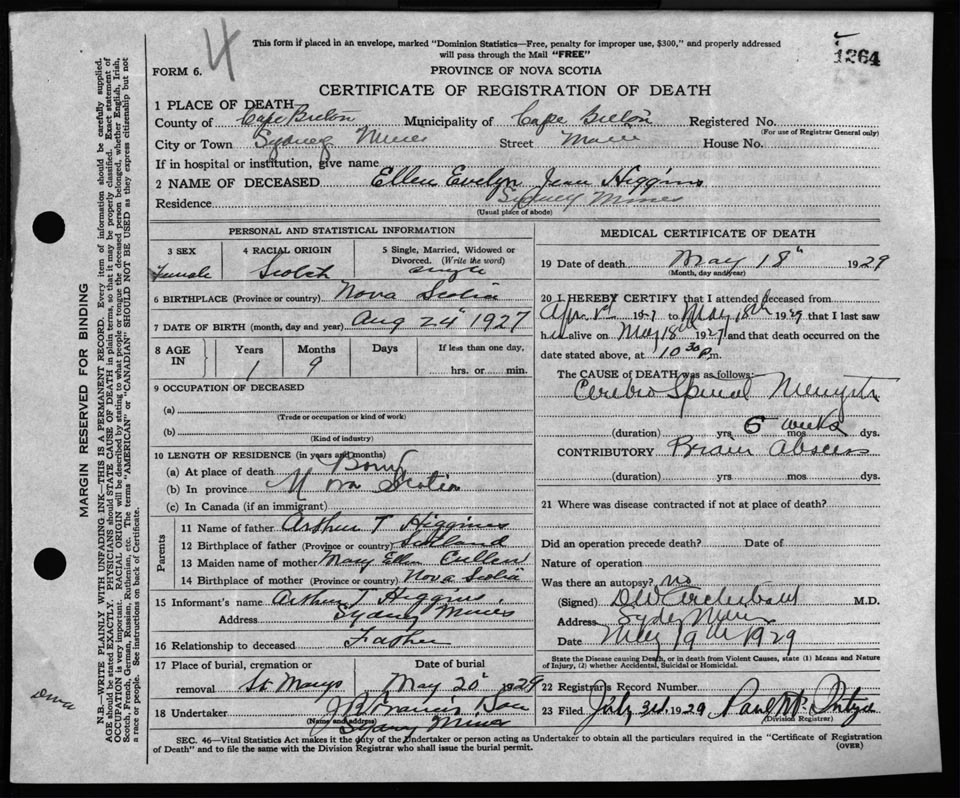 4
1264
This form if placed in an envelope, marked "Dominion Statistics—Free, penalty for improper use, $300," and properly addressed
will pass through the Mail "FREE"
FORM 6.
PROVINCE OF NOVA SCOTIA
CERTIFICATE OF REGISTRATION OF DEATH
1 PLACE OF DEATH
County of Cape Breton Municipality of Cape Breton Registered No.
(For use of Registrar General only)
City or Town Sydney Mines Street Main House No.
If in hospital or institution, give name
2 NAME OF DECEASED Ellen Evelyn Jean Higgins
Residence Sydney Mines
(Usual place of abode)
PERSONAL AND STATISTICAL INFORMATION
3 SEX 4 RACIAL ORIGIN 5 Single, Married, Widowed or
Divorced. (Write the word)
Female Scotch single
6 BIRTHPLACE (Province or country) Nova Scotia
7 DATE OF BIRTH (month, day and year) Aug 24" 1927
8 AGE IN Years Months Days If less than one day,
1 9 hrs. or min.
9 OCCUPATION OF DECEASED
(a)
(Trade or occupation or kind of work)
(b)
(Kind of industry)
10 LENGTH OF RESIDENCE (in years and months)
(a) At place of death Born
(b) In province Nova Scotia
(c) In Canada (if an immigrant)
Parents
11 Name of father Arthur T Higgins
12 Birthplace of father (Province or country) Scotland
13 Maiden name of mother Mary Ellen Cullen
14 Birthplace of mother (Province or country) Nova Scotia
15 Informant's name Arthur T Higgins
Address Sydney Mines
16 Relationship to deceased Father
17 Place of burial, cremation or Date of burial
removal St Marys May 20" 1929
18 Undertaker J B Francis & Son
(Name and address) Sydney Mines
MEDICAL CERTIFICATE OF DEATH
19 Date of death May 18" 1929
(Month, day and year)
20 I HEREBY CERTIFY that I attended deceased from
Apr 192 to May 18th 1929 that I last saw
h alive on May 18th 192 and that death occurred on the
date stated above, at 10 30 P.m.
The CAUSE OF DEATH was as follows:
Cerebro Spinal
(duration) yrs 6 weeks mos dys.
CONTRIBUTORY Brain Abscess
(duration) yrs. mos dys.
21 Where was disease contracted if not at place of death?
Did an operation precede death? Date of
Nature of operation
Was there an autopsy? no
(Signed) D W Archibald M.D.
Address Sydney Mines
Date May 19th 1929
State the Disease causing Death, or in death from Violent Causes, state (1) Means and Nature
of Injury, (2) whether Accidental, Suicidal or Homicidal.
22 Registrar's Record Number
23 Filed July 1929
(Division Registrar)
SEC. 46—Vital Statistics Act makes it the duty of the Undertaker or person acting as Undertaker to obtain all the particulars required in the "Certificate of Registration
of Death" and to file the same with the Division Registrar who shall issue the burial permit.
(OVER)
MARGIN RESERVED FOR BINDING
N.B.—WRITE PLAINLY WITH UNFADING INK—THIS IS A PERMANENT RECORD. Every item of information should be carefully supplied.
AGE should be stated EXACTLY. PHYSICIANS should STATE CAUSE OF DEATH in plain terms, so that it may be properly classified. Exact statement of
OCCUPATION is very important. RACIAL ORIGIN will be described by stating to what people or tongue the deceased person belonged, whether English, Irish,
Scotch, French, German, Russian, Ruthenian, etc. The terms "AMERICAN" or "CANADIAN" SHOULD NOT BE USED as they express citizenship but not
a race or people. See instructions on back of Certificate.